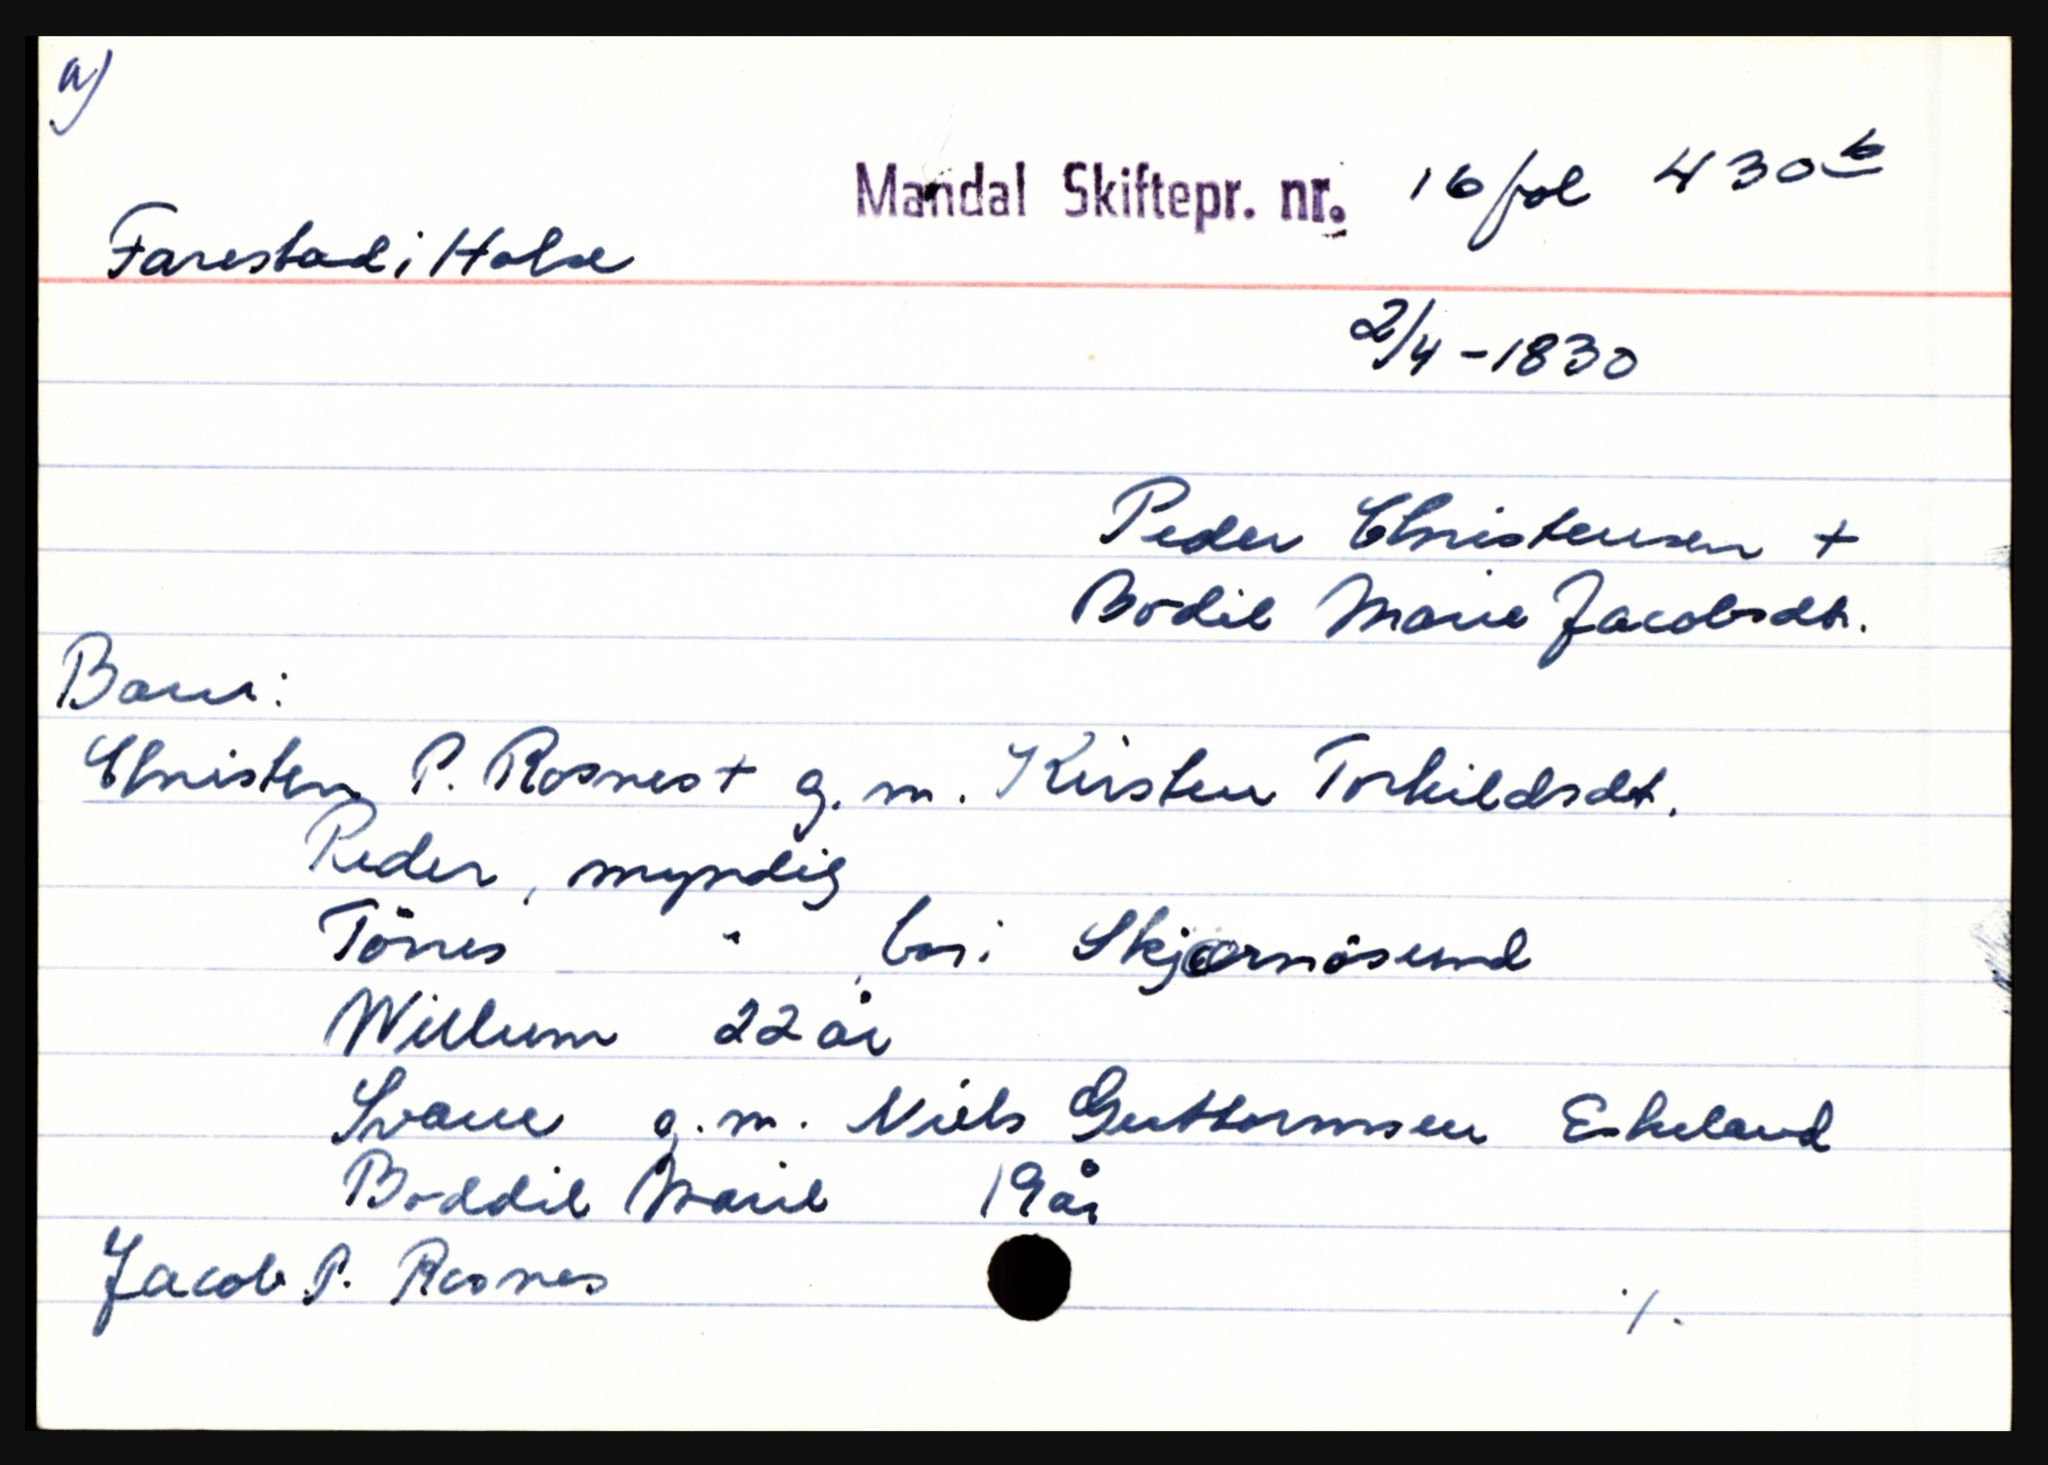 a)
Mandal Skiftepr. nr. 16 fol 430 b
Farestad i Halse
2/4 - 1830
Peder Christensen +
Bodil Marie Jacobsdt.
Barn:
Christen P. Rosnes + g. m. Kirsten Torkildsdt.
Peder, myndig
Tönnes " , bor i Skjærnösund
Willum 22 år
Svane g. m. Niels Guttormsen Eskeland
Boddil Marie 19 år
Jacob P. Rosnes
./.